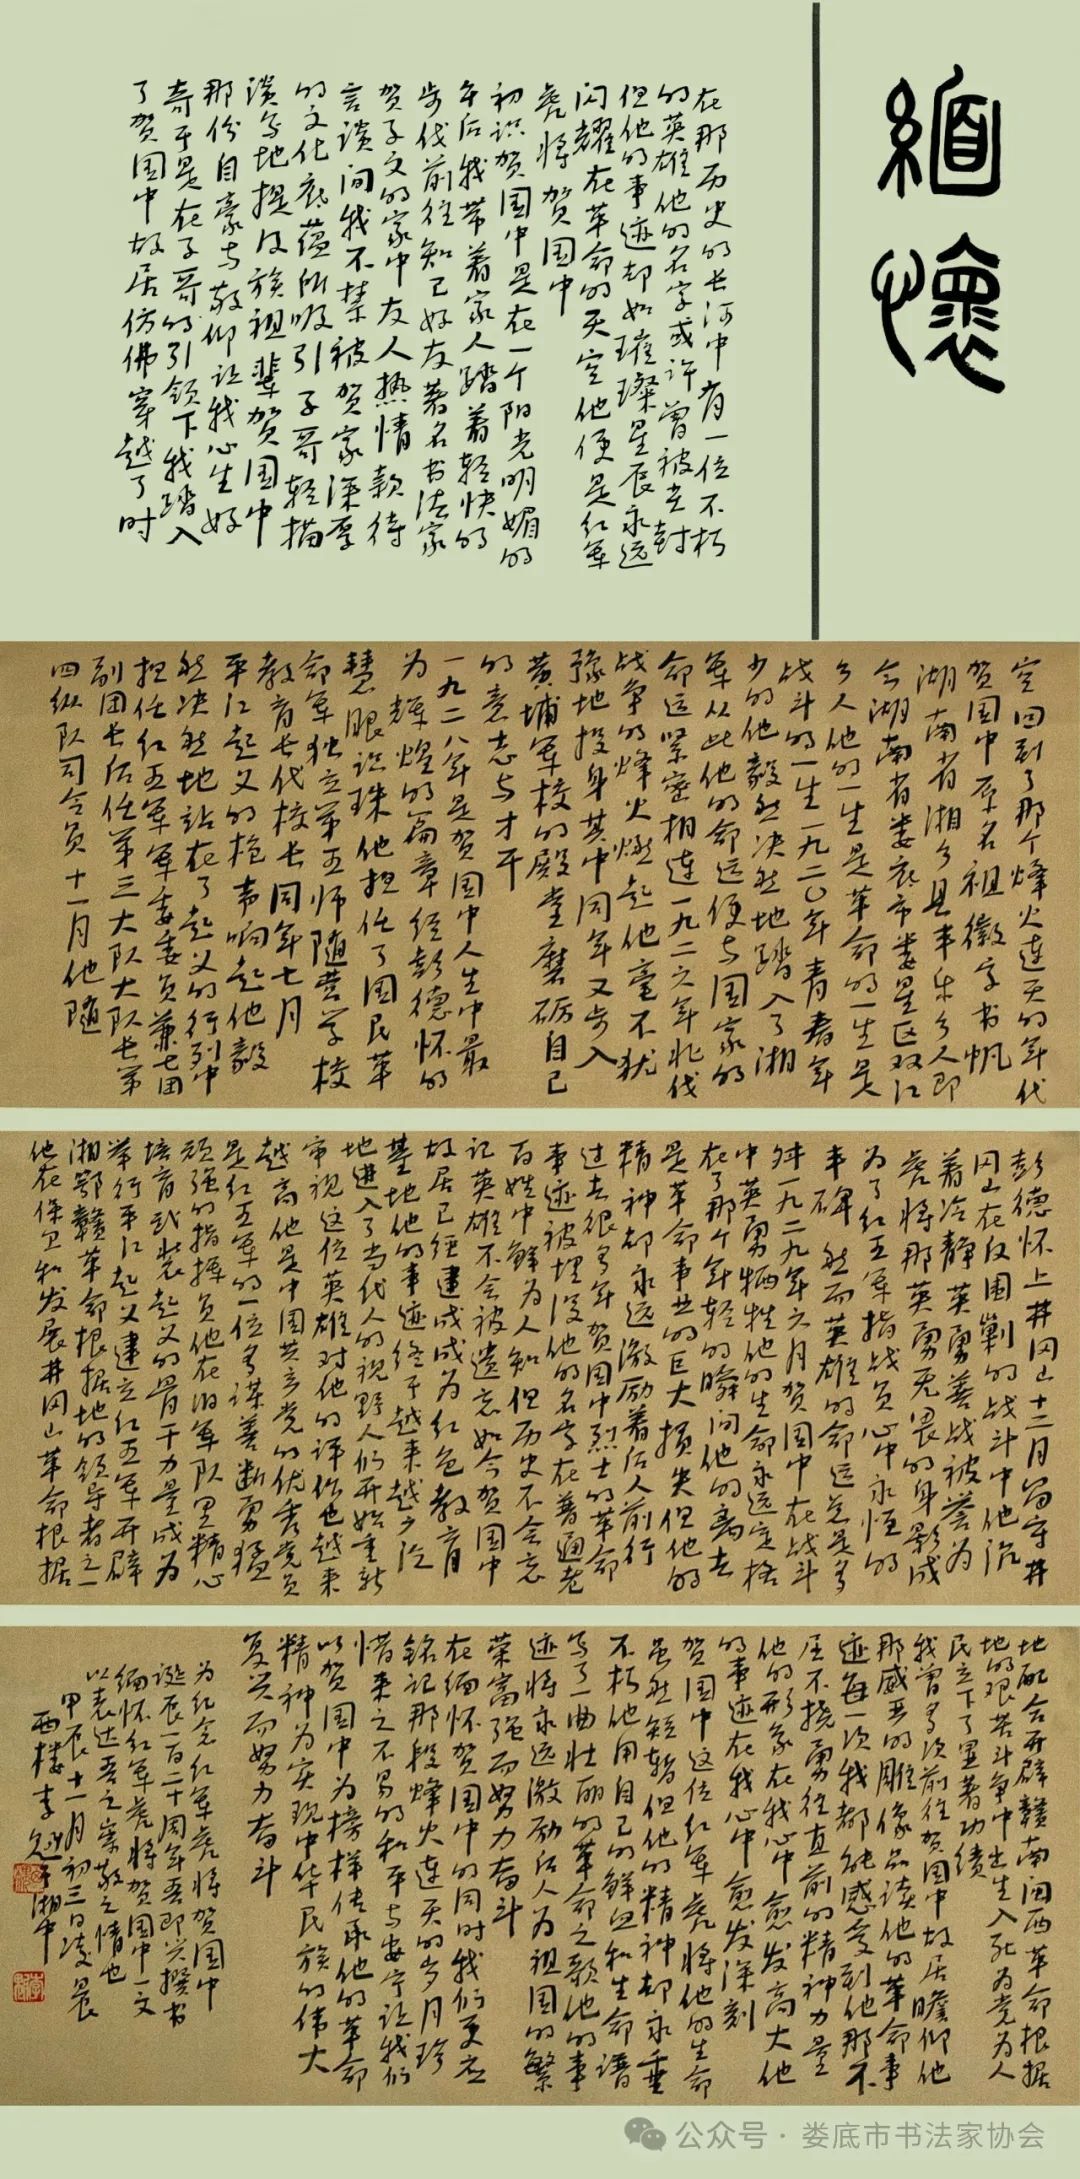 缅怀
在那历史的长河中有一位不朽
的英雄他的名字或许曾被尘封
但他的事迹却如璀璨星辰永远
闪耀在革命的天空他便是红军
虎将贺国中
初识贺国中是在一个阳光明媚的
午后我带着家人踏着轻快的
步伐前往知己好友著名书法家
贺子文的家中友人热情款待
言谈间我不禁被贺家深厚
的文化底蕴所吸引子哥轻描
淡写地提及族祖辈贺国中
那份自豪与敬仰让我心生好
奇于是在子哥的引领下我踏入
了贺国中故居仿佛穿越了时
空回到了那个烽火连天的年代
贺国中原名祖徽字书帆
湖南省湘乡县丰乐乡人即
今湖南省娄底市娄星区双江
乡人他的一生是革命的一生是
战斗的一生一九二〇年青春年
少的他毅然决然地踏入了湘
军从此他的命运便与国家的
命运紧密相连一九二六年北伐
战争的烽火燃起他毫不犹
豫地投身其中同年又步入
黄埔军校的殿堂磨砺自己
的意志与才干
一九二八年是贺国中人生中最
为辉煌的篇章经彭德怀的
慧眼识珠他担任了国民革
命军独立第五师随营学校
教育长代校长同年七月
平江起义的枪声响起他毅
然决然地站在了起义的行列中
担任红五军军委委员兼七团
副团长后任第三大队大队长第
四纵队司令员十一月他随
彭德怀上井冈山十二月留守井
冈山在反围剿的战斗中他沉
着冷静英勇善战被誉为
虎将那英勇无畏的身影成
为了红五军指战员心中永恒的
丰碑然而英雄的命运总是多
舛一九二九年六月贺国中在战斗
中英勇牺牲他的生命永远定格
在了那个年轻的瞬间他的离去
是革命事业的巨大损失但他的
精神却永远激励着后人前行
过去很多年贺国中烈士的革命
事迹被埋没他的名字在普通老
百姓中鲜为人知但历史不会忘
记英雄不会被遗忘如今贺国中
故居已经建成成为红色教育
基地他的事迹终于越来越广泛
地进入了当代人的视野人们开始重新
审视这位英雄对他的评价也越来
越高他是中国共产党的优秀党员
是红五军的一位多谋善断勇猛
顽强的指挥员他在旧军队里精心
培育武装起义的骨干力量成为
举行平江起义建立红五军开辟
湘鄂赣革命根据地的领导者之一
他在保卫和发展井冈山革命根据
地配合开辟赣南闽西革命根据
地的艰苦斗争中出生入死为党为人
民立下了显著功绩
我曾多次前往贺国中故居瞻仰他
那威严的雕像品读他的革命事
迹每一次我都能感受到他那不
屈不挠勇往直前的精神力量
他的形象在我心中愈发高大他
的事迹在我心中愈发深刻
贺国中这位红军虎将他的生命
虽然短暂但他的精神却永垂
不朽他用自己的鲜血和生命谱
写了一曲壮丽的革命之歌他的事
迹将永远激励后人为祖国的繁
荣富强而努力奋斗
在缅怀贺国中的同时我们更应
铭记那段烽火连天的岁月珍
惜来之不易的和平与安宁让我们
以贺国中为榜样传承他的革命
精神为实现中华民族的伟大
复兴而努力奋斗
为纪念红军虎将贺国中
诞辰一百二十周年吾即兴撰书
缅怀红军虎将贺国中一文
以表达吾之崇敬之情也
甲辰十一月初三日凌晨
西楼李 于湘中
公众号·娄底市书法家协会